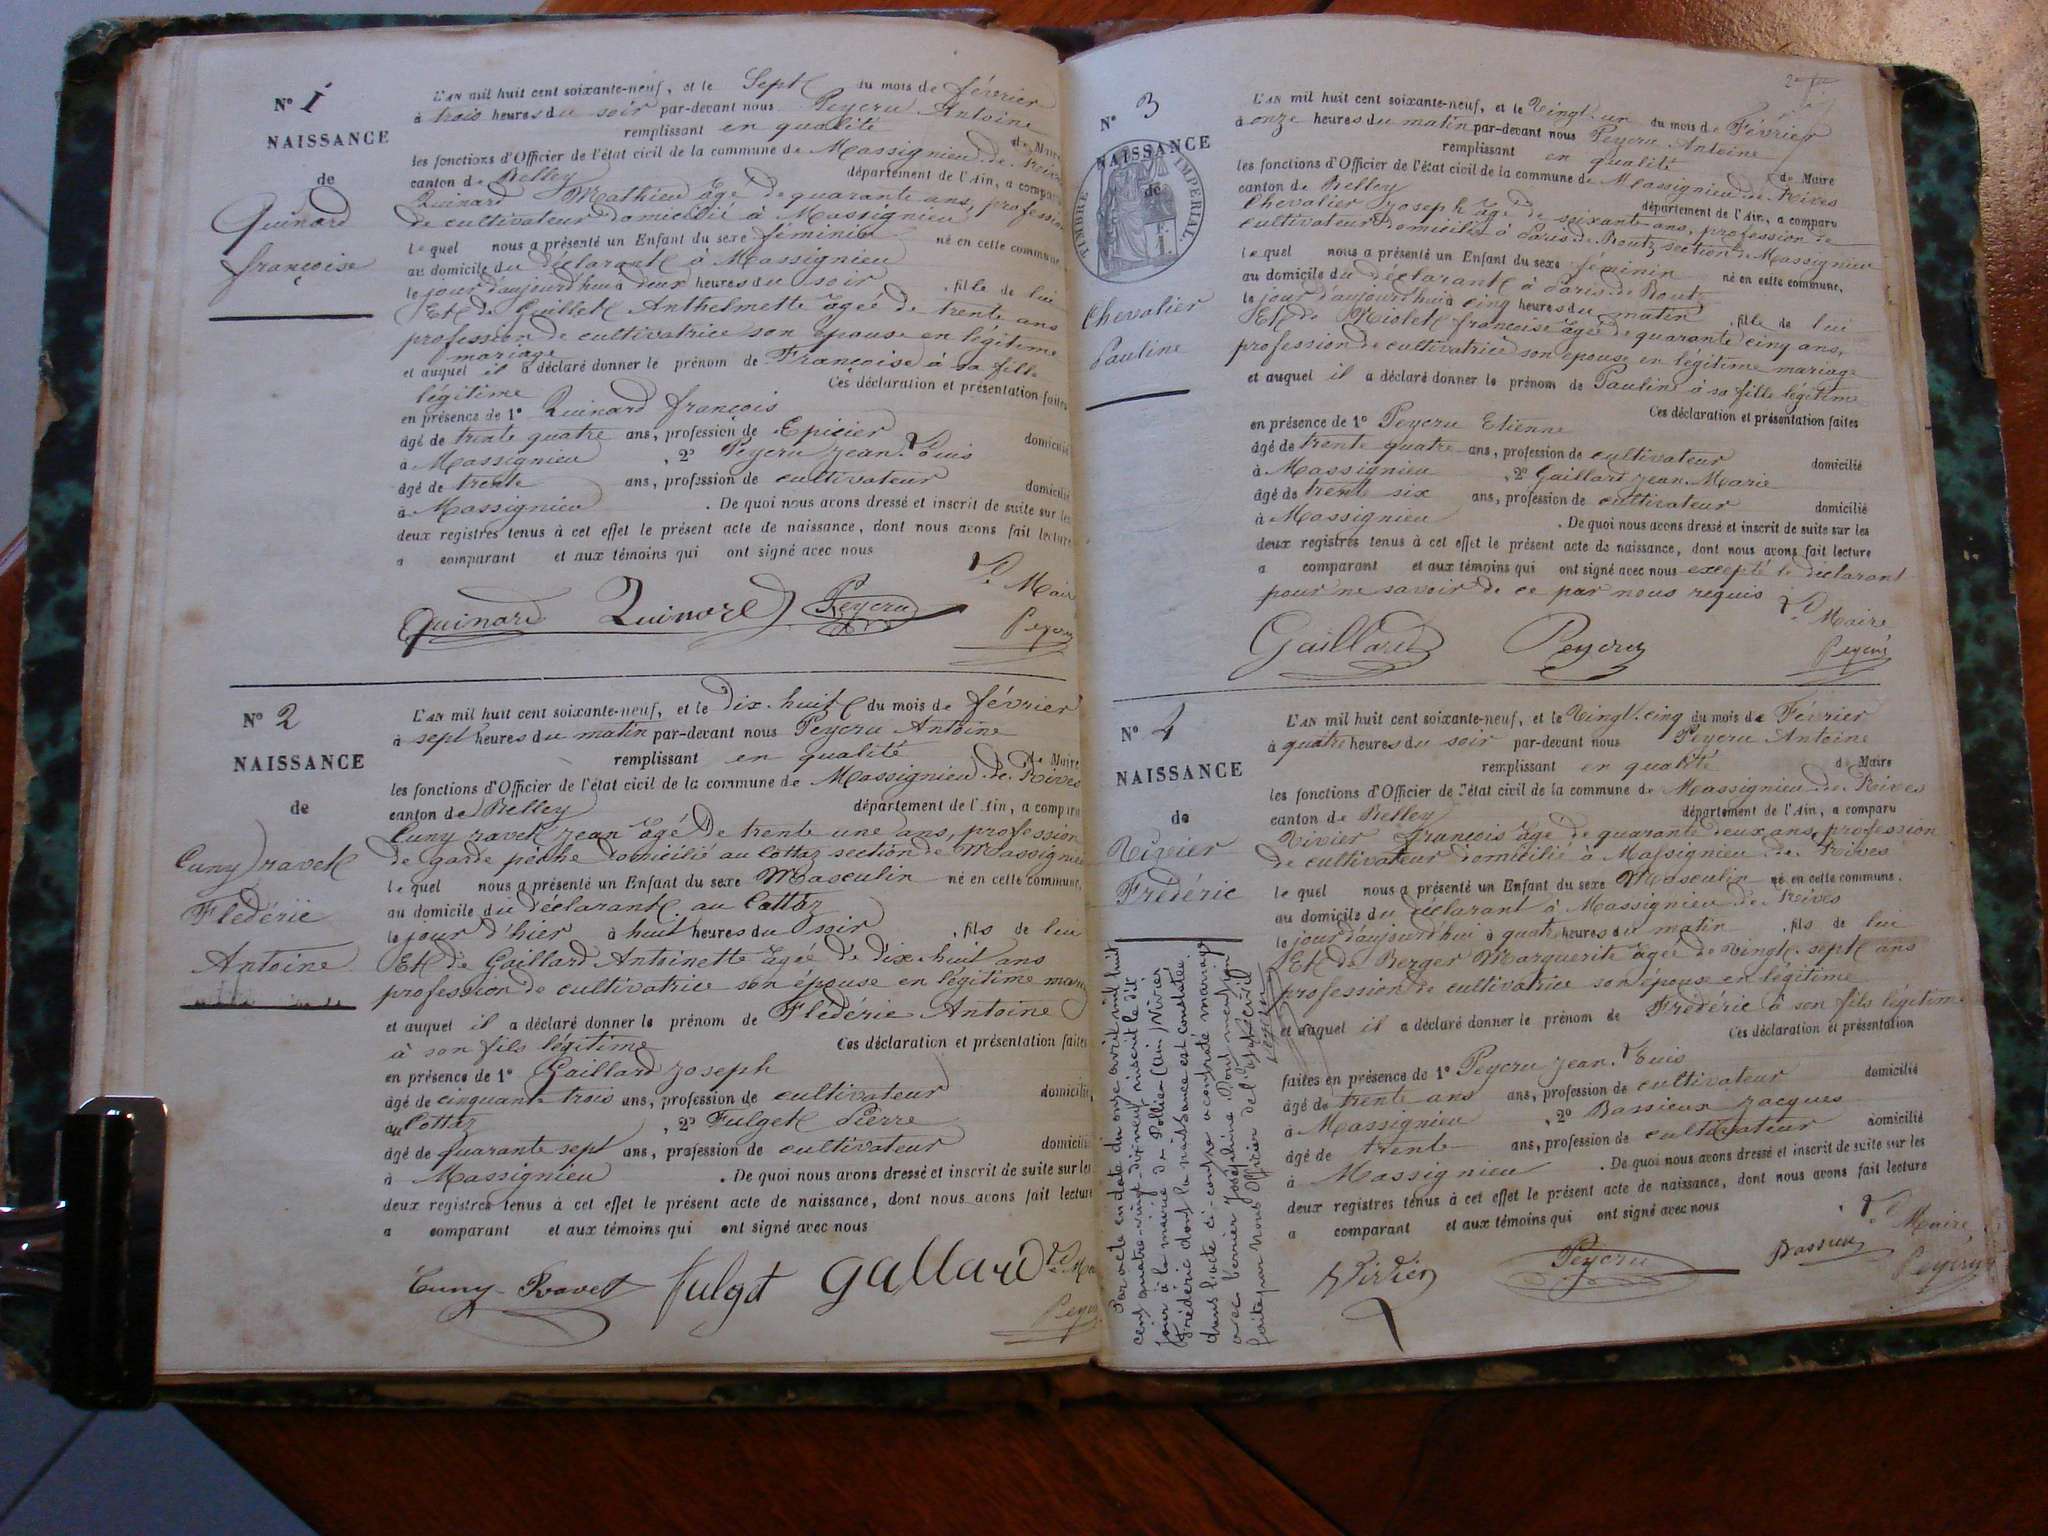 N° 1
NAISSANCE
de
Quinard
françoise
L'AN mil huit cent soixante-neuf, et le Sept du mois de février
à trois heures du soir par-devant nous Peycru Antoine
remplissant en qualité de Maire
les fonctions d'Officier de l'état civil de la commune de Massignieu de Rives
canton de Belley département de l'Ain, a comparu
Quinard Mathieu âgé de quarante ans, profession
de cultivateur domicilié à Massignieu
lequel nous a présenté un Enfant du sexe féminin né en cette commune,
au domicile du déclarant à Massignieu
le jour d'aujourd'hui à deux heures du soir, fille de lui
Et de Guillet Anthelmette âgée de trente ans
profession de cultivatrice son épouse en légitime
mariage
et auquel il a déclaré donner le prénom de Françoise à sa fille
légitime Ces déclaration et présentation faites
en présence de 1° Quinard françois
âgé de trente quatre ans, profession de Epicier domicilié
à Massignieu, 2° Peycru Jean-Louis
âgé de trente ans, profession de cultivateur domicilié
à Massignieu. De quoi nous avons dressé et inscrit de suite sur les
deux registres tenus à cet effet le présent acte de naissance, dont nous avons fait lecture
a comparant et aux témoins qui ont signé avec nous
Le Maire
Quinard Quinard Peycru Peycru
N° 2
NAISSANCE
de
Cuny ravet
Fledérie
Antoine
L'AN mil huit cent soixante-neuf, et le dix-huit du mois de février
à sept heures du matin par-devant nous Peycru Antoine
remplissant en qualité de Maire
les fonctions d'Officier de l'état civil de la commune de Massignieu de Rives
canton de Belley département de l'Ain, a comparu
Cuny ravet jean âgé De trente une ans, profession
de garde pêche domicilié au Cottaz section de Massignieu
lequel nous a présenté un Enfant du sexe Masculin né en cette commune,
au domicile du déclarant au Cottaz
le jour d'hier à huit heures du soir, fils de lui
Et de Gaillard Antoinette âgée de dix-huit ans
profession de cultivatrice son épouse en légitime
et auquel il a déclaré donner le prénom de Fledérie Antoine
à son fils légitime Ces déclaration et présentation faites
en présence de 1° Gaillard joseph
âgé de cinquante trois ans, profession de cultivateur domicilié
au Cottaz, 2° Fulget Pierre
âgé de quarante sept ans, profession de cultivateur domicilié
à Massignieu. De quoi nous avons dressé et inscrit de suite sur les
deux registres tenus à cet effet le présent acte de naissance, dont nous avons fait lecture
a comparant et aux témoins qui ont signé avec nous
Cuny-Ravet fulgt gallard Le
N° 3
NAISSANCE
de
TIMBRE IMPERIAL
Chevalier
Pauline
L'AN mil huit cent soixante-neuf, et le Vingt-un du mois de Février
à onze heures du matin par-devant nous Peycru Antoine
remplissant en qualité de Maire
les fonctions d'Officier de l'état civil de la commune de Massignieu de Rives
canton de Belley département de l'Ain, a comparu
Chevalier joseph âgé de soixante ans, profession de
cultivateur domicilié à Paris de Boutz section de Massignieu
lequel nous a présenté un Enfant du sexe féminin né en cette commune,
au domicile du déclarant à Paris de Boutz
le jour d'aujourd'hui à cinq heures du matin, fille de lui
Et de Miolet françoise âgée de quarante cinq ans,
profession de cultivatrice son épouse en légitime mariage
et auquel il a déclaré donner le prénom de Pauline à sa fille légitime
Ces déclaration et présentation faites
en présence de 1° Peycru Etienne
âgé de trente quatre ans, profession de cultivateur domicilié
à Massignieu, 2° Gaillard Jean Marie
âgé de trente six ans, profession de cultivateur domicilié
à Massignieu. De quoi nous avons dressé et inscrit de suite sur les
deux registres tenus à cet effet le présent acte de naissance, dont nous avons fait lecture
a comparant et aux témoins qui ont signé avec nous excepté le déclarant
pour ne savoir de ce par nous requis Le Maire
Gaillard Peycru Peycru
N° 4
NAISSANCE
de
Vivier
Frédéric
L'AN mil huit cent soixante-neuf, et le Vingt-cinq du mois de Février
à quatre heures du soir par-devant nous Peycru Antoine
remplissant en qualité de Maire
les fonctions d'Officier de l'état civil de la commune de Massignieu de Rives
canton de Belley département de l'Ain, a comparu
Vivier françois âgé de quarante deux ans, profession
de cultivateur domicilié à Massignieu de Rives
lequel nous a présenté un Enfant du sexe Masculin né en cette commune,
au domicile du déclarant à Massignieu de Rives
le jour d'aujourd'hui à quatre heures du matin, fils de lui
Et de Berger Marguerite âgée de vingt-sept ans
profession de cultivatrice son épouse en légitime
et auquel il a déclaré donner le prénom de Frédéric à son fils légitime
Ces déclaration et présentation
faites en présence de 1° Peycru jean-Louis
âgé de trente ans ans, profession de cultivateur domicilié
à Massignieu, 2° Bassieux Jacques
âgé de trente ans, profession de cultivateur domicilié
à Massignieu. De quoi nous avons dressé et inscrit de suite sur les
deux registres tenus à cet effet le présent acte de naissance, dont nous avons fait lecture
a comparant et aux témoins qui ont signé avec nous
Le Maire
Vivier Peycru Bassieux Peycru
Par acte en date du onze avril mil huit
cent quatre-vingt-dix neuf inscrit le dit
jour à la mairie de Pollieu (Ain) Vivier
Frédéric dont la naissance est constatée
dans l'acte ci-contre a contracté mariage
avec Verrier Joséphine Pour mention
faite par nous Officier de l'Etat-civil